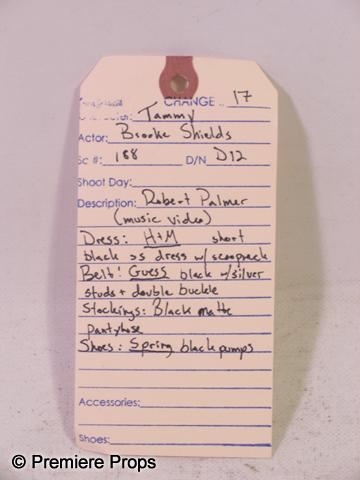 CHANGE 17
Tammy
Actor: Brooke Shields
Sc #: 188 D/N D12
Shoot Day:
Description: Robert Palmer
(music video)
Dress: H+M short
black ss dress w/ scoopneck
Belt: Guess black w/silver
studs + double buckle
Stockings: Black matte
pantyhose
Shoes: Spring black pumps
Accessories:
Shoes:
© Premiere Props